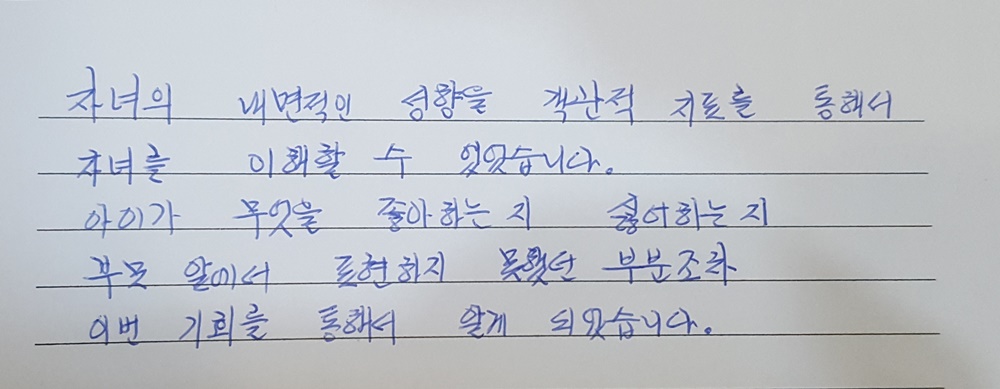 자녀의 내면적인 성향을 객관적 지표를 통해서
자녀를 이해할 수 있었습니다.
아이가 무엇을 좋아하는 지 싫어하는 지
부모 앞에서 표현하지 못했던 부분조차
이번 기회를 통해서 알게 되었습니다.